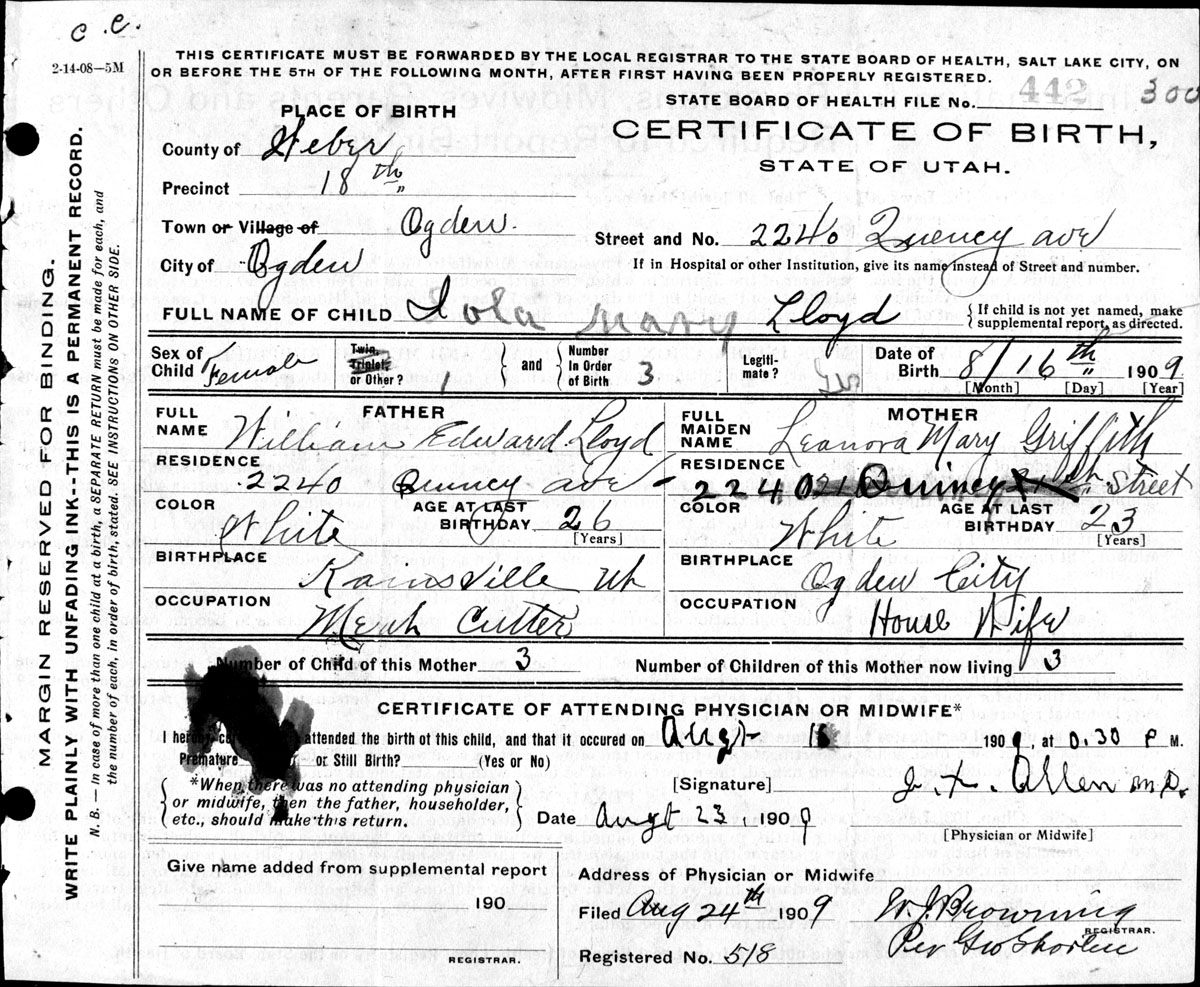 c. c.
2-14-08—5M
THIS CERTIFICATE MUST BE FORWARDED BY THE LOCAL REGISTRAR TO THE STATE BOARD OF HEALTH, SALT LAKE CITY, ON
OR BEFORE THE 5TH OF THE FOLLOWING MONTH, AFTER FIRST HAVING BEEN PROPERLY REGISTERED.
STATE BOARD OF HEALTH FILE No. 442 300
PLACE OF BIRTH
CERTIFICATE OF BIRTH,
STATE OF UTAH.
County of Weber
Precinct 18th
Town or Village of Ogden.
Street and No. 2240 Quency ave
City of Ogden
If in Hospital or other Institution, give its name instead of Street and number.
FULL NAME OF CHILD Iola Mary Lloyd
If child is not yet named, make
supplemental report, as directed.
Sex of Child Female
Twin, Triplet, or Other? 1
and
Number In Order of Birth 3
Legiti- mate? Yes
Date of Birth 8/16th 1909
[Month] [Day] [Year]
FATHER
FULL NAME William Edward Lloyd
RESIDENCE 2240 Quincy ave
COLOR White AGE AT LAST BIRTHDAY 26
[Years]
BIRTHPLACE
OCCUPATION Cutter
MOTHER
FULL MAIDEN NAME Leanora Mary Griffith
RESIDENCE 2240 Quincy Street
COLOR White AGE AT LAST BIRTHDAY 23
[Years]
BIRTHPLACE Ogden City
OCCUPATION House Wife
Number of Child of this Mother 3
Number of Children of this Mother now living 3
CERTIFICATE OF ATTENDING PHYSICIAN OR MIDWIFE*
I attended the birth of this child, and that it occured on Augt 1909, at 0.30 P M.
Premature or Still Birth? (Yes or No)
*When there was no attending physician
or midwife, then the father, householder,
etc., should make this return.
[Signature] Allen M.D.
Date Augt 23, 1909
[Physician or Midwife]
Give name added from supplemental report
190
REGISTRAR.
Address of Physician or Midwife
Filed Aug 24th 1909
W. J. Browning
REGISTRAR.
Per Geo
Registered No. 518
MARGIN RESERVED FOR BINDING.
WRITE PLAINLY WITH UNFADING INK--THIS IS A PERMANENT RECORD.
N. B. — In case of more than one child at a birth, a SEPARATE RETURN must be made for each, and
the number of each, in order of birth, stated. SEE INSTRUCTIONS ON OTHER SIDE.